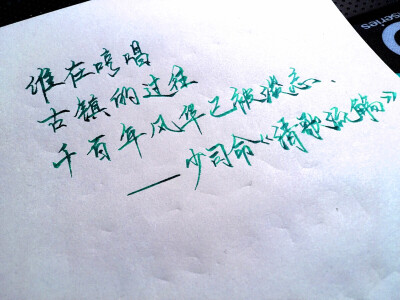 谁在哼唱
古镇的过往
千百年风华已被淡忘.
——少司命《清歌流觞》
series